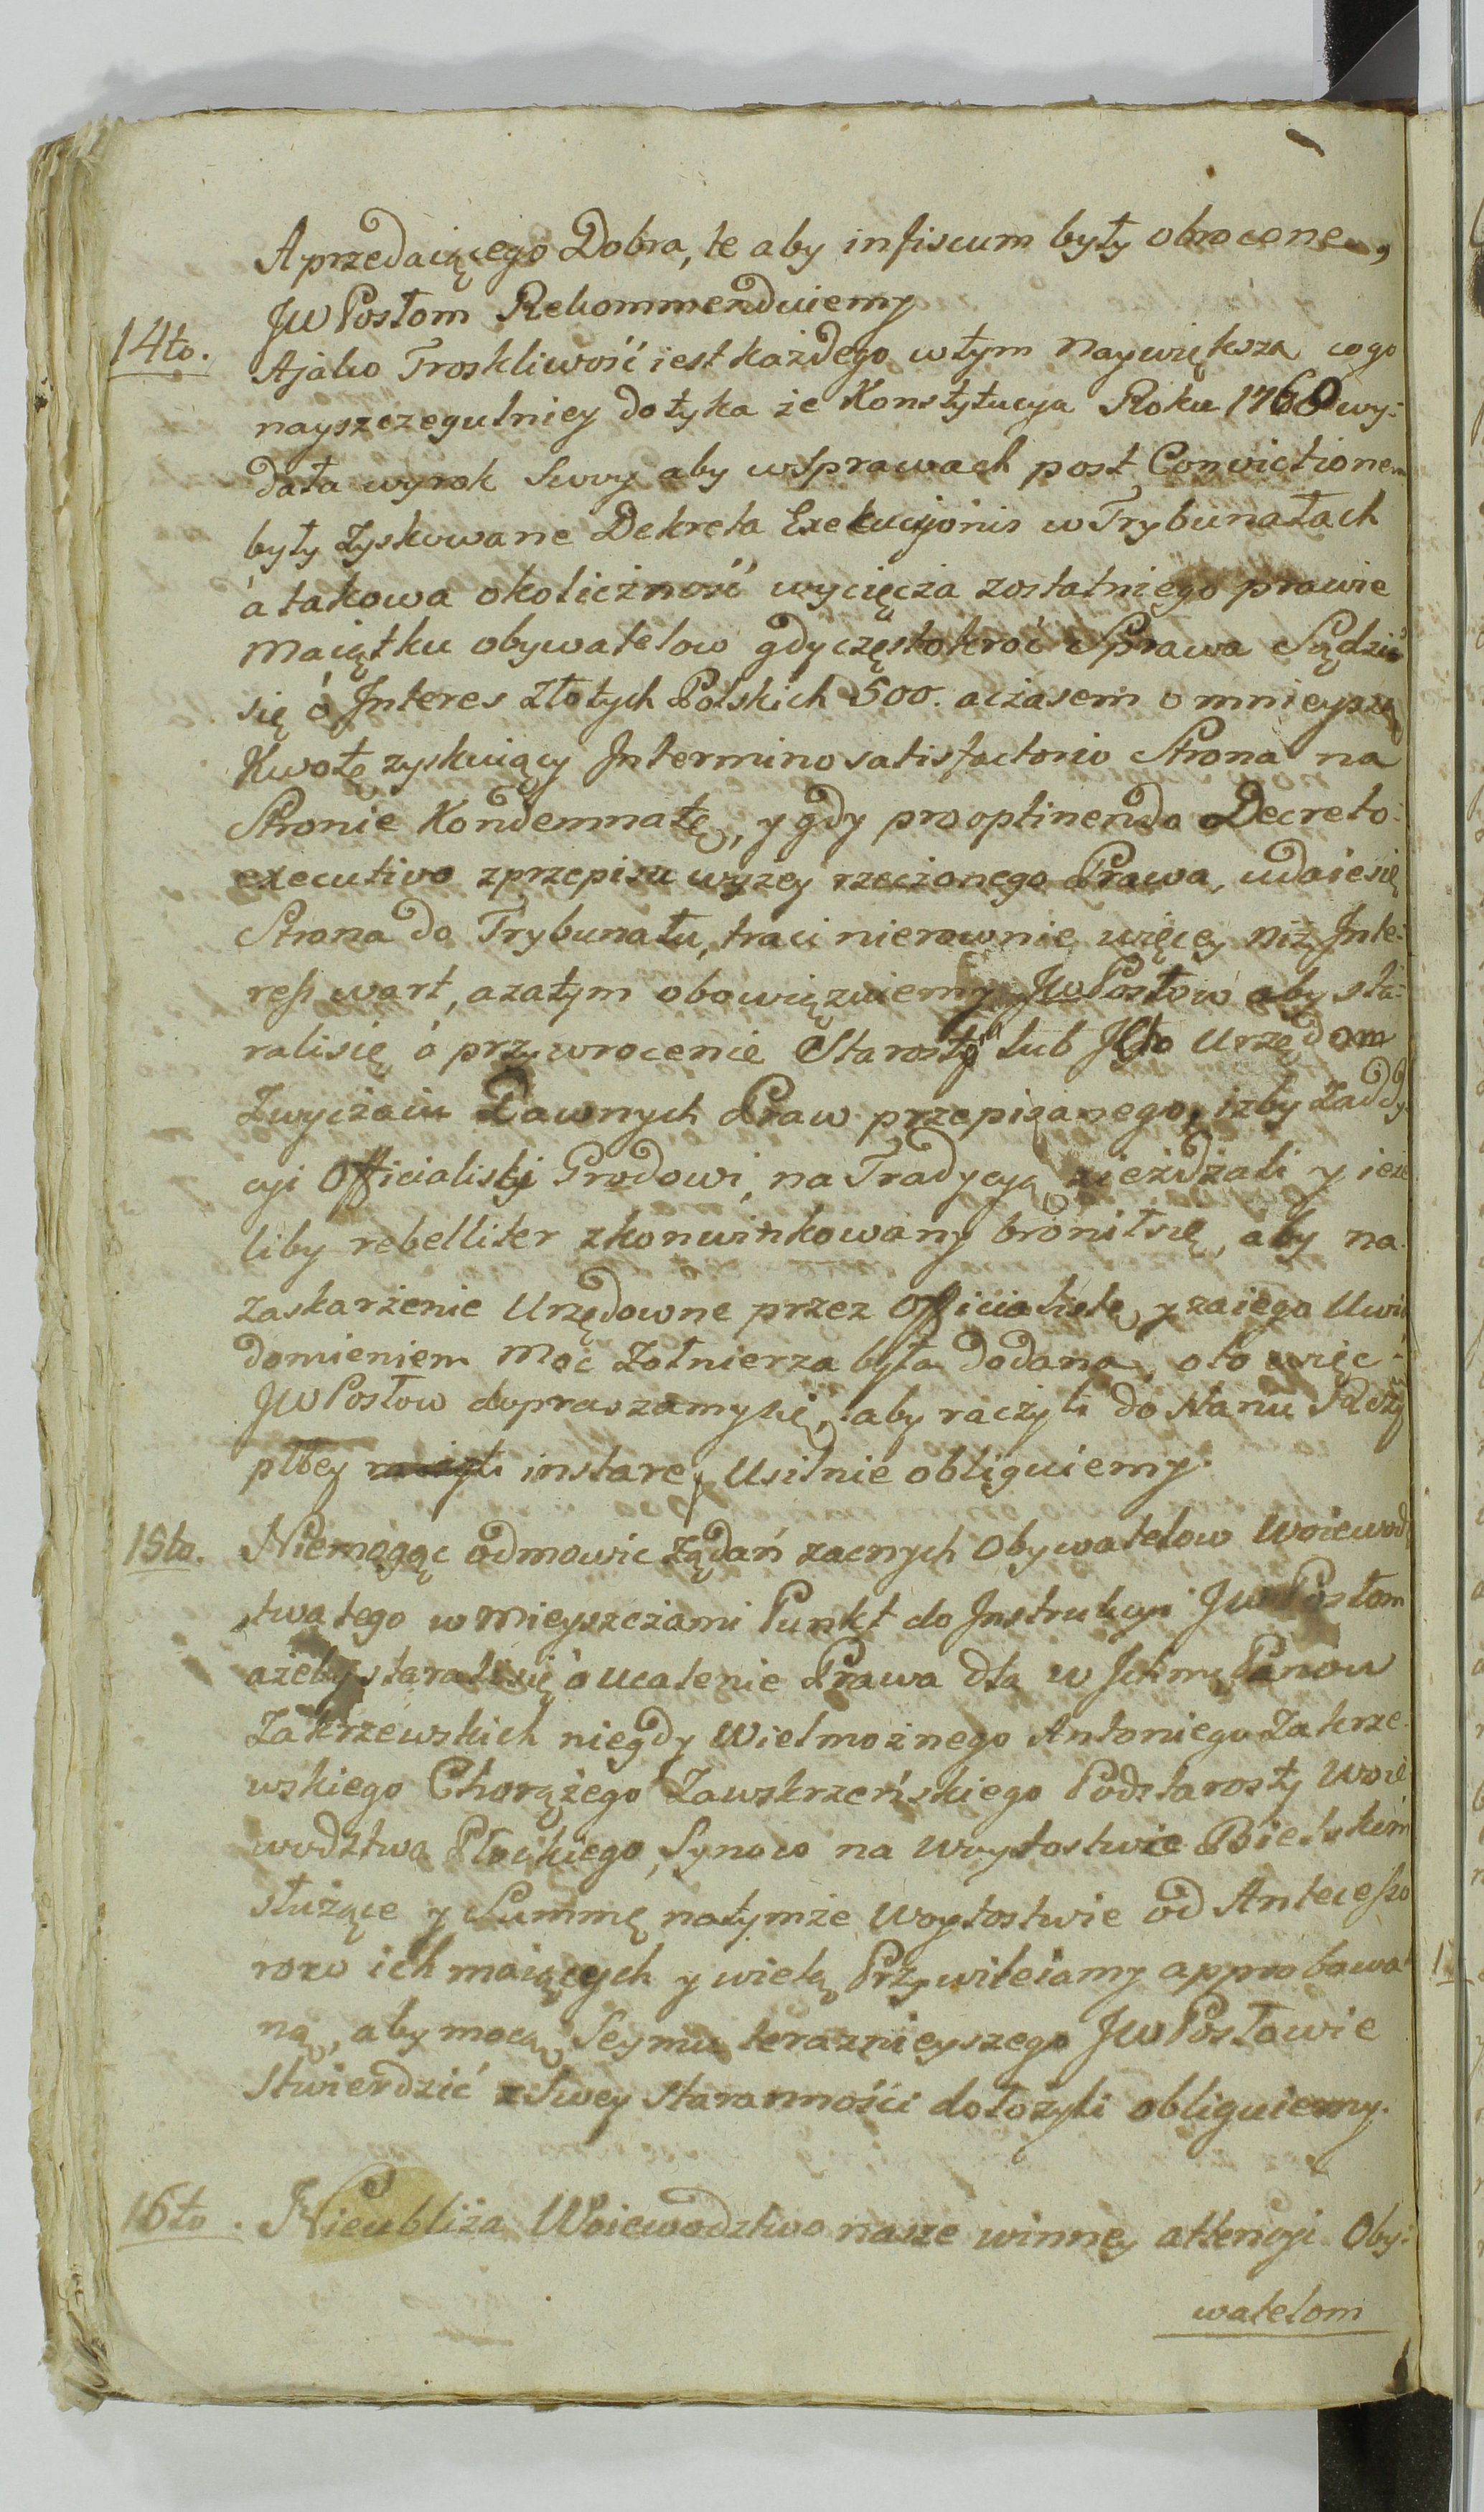 A przedaiącego Dobra, te aby in fiscum były obrocone,
JW Posłom Rekommenduiemy
14to. A jako Troskliwość iest każdego w tym naywiększa cogo
nayszczegulniey dotyka że Konstytucya Roku 1768 wy:
dała wyrok Swoy aby w sprawach post Convictionem
były zyskiwane Dekreta Exekucyjonis w Trybunałach
á takowa okoliczność wycięcza zostatniego prawie
Maiątku obywatelow gdy częstokroć Sprawa Sądzi
się ó Interes Złotych Polskich 500. aczasem o mnieyszą
Kwotę zyskuiący In termino satisfactorio Strona na
Stronie Kondemnatę, y gdy pro optinendo Decreto
executivo z przepisu wyzey rzeczonego Prawa, udaie się
Strona do Trybunału, traci nierownie więcey niż Inte:
ress wart, a zatym obowiązuiemy JW Posłow aby sta:
rali się ó przywrocenie Starosty lub Jego Urzędom
Zwyczaiu Dawnych Praw przepisanego, izby Zaddy
cyi Officialiski Grodowi, na Tradycyą zieżdżali y ieże
liby rebelliter zkonwinkowany bronił się, aby na
zaskarżenie Urzędowne przez Officialistę y za iego Uwia
domieniem Moc Zołnierza była dodana, oto więc
JW Posłow dopraszamy się, aby raczyli do Stanu Rzczy
pltey instare, Usilnie obliguiemy.
15to. Niemogąc odmowic żądań zacnych Obywatelow Woiewodz
twa tego w Mieyszczami Punkt do Instrukcyi JW Posłom
ażeby starali się ó Ucalenie Prawa dla W Ichmę Panow
Zakrzewskich niegdy Wielmożnego Antoniego Zakrze
wskiego Chorążego Zawskrzeńskiego Podstarosty Woie
wodztwa Płockiego Synow na Woytostwie Bielskim
służące y Summę natymże Woytostwie od Antecesso
row ich maiących y wielą Przywileiamy approbowa
ną, aby mocą Seymu teraznieyszego JW Posłowie
Stwierdzić z Swey Staranności dołożyli obliguiemy.
16to. Nieubliża Woiewodztwo nasze winney attencyi Oby:
watelom